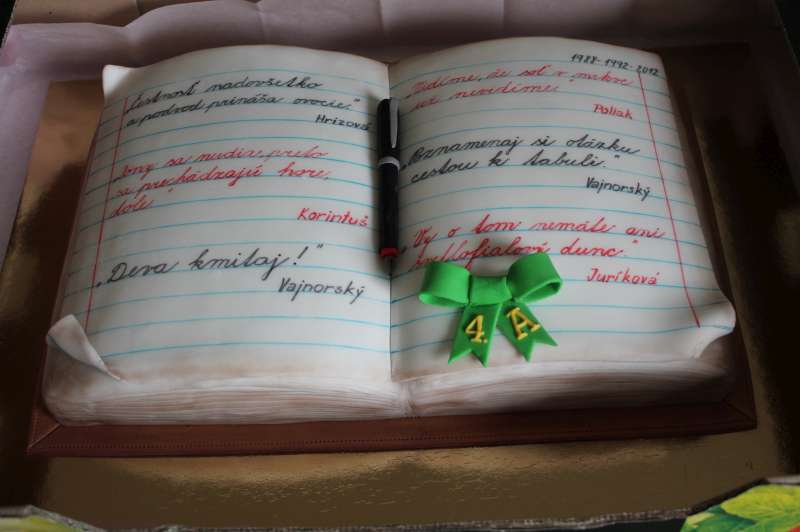 „Čestnosť nadovšetko
a podvod prináša ovocie."
Hrizová
„Ióny sa nudia, preto
sa prechádzajú hore,
dole."
Korintuš
„Deva kmitaj!"
Vajnorský
1988-1992-2012
„Vidíme, že soľ v mrkve
už nevidíme."
Poliak
„Poznamenaj si otázku
cestou k tabuli."
Vajnorský
„Vy o tom nemáte ani
svetlofialový dunc."
Juríková
4. A